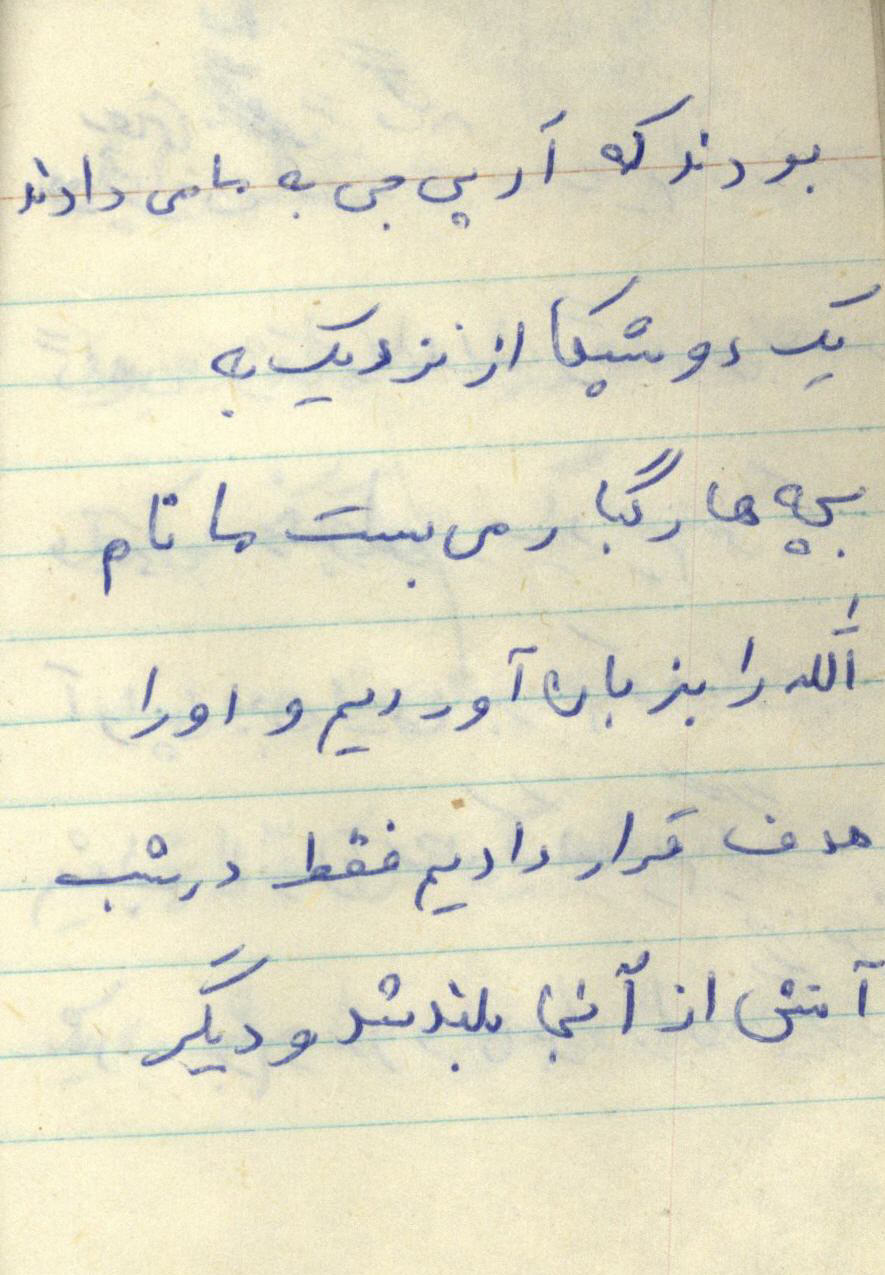 بودند که آر پی جی به ما می دادند
یک دوشیکا از نزدیک به
بچه ها رگبار می بست ما نام
الله را بزبان آوردیم و او را
هدف قرار دادیم فقط در شب
آتش از آنجا بلند شد و دیگر